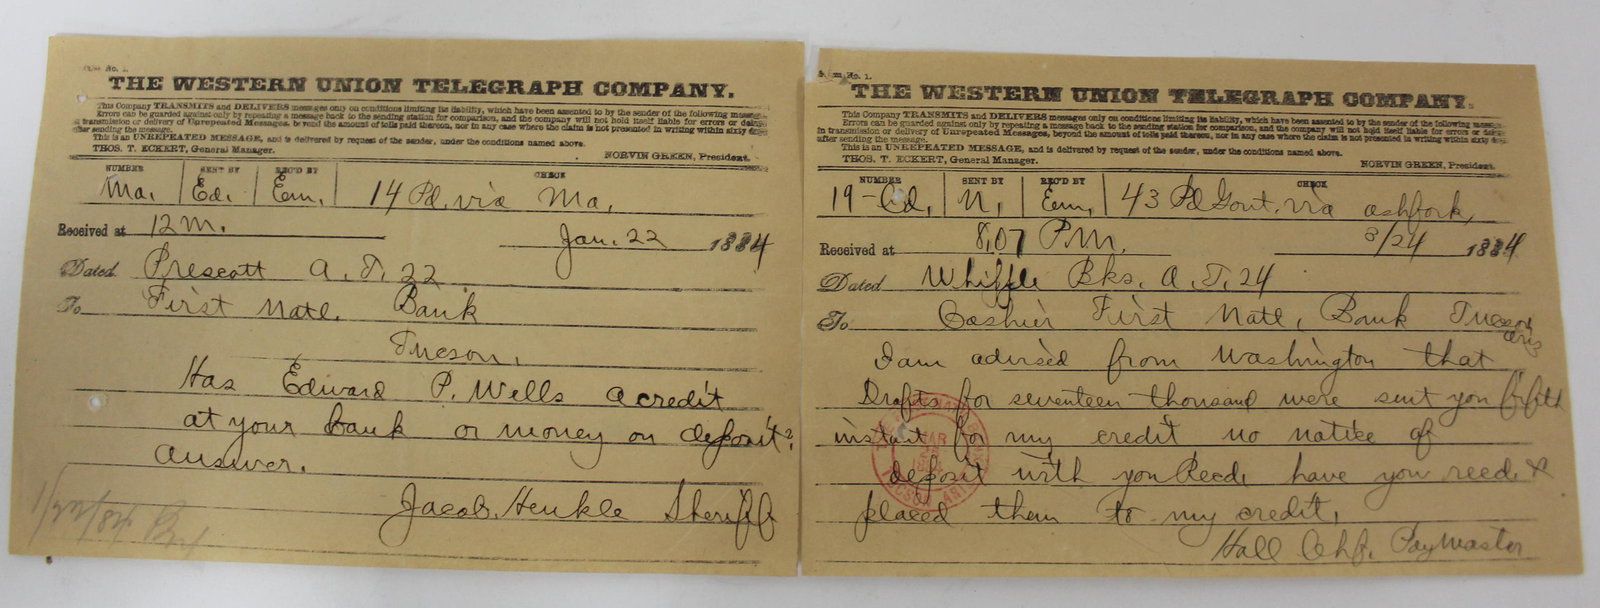 Form No. 1.
THE WESTERN UNION TELEGRAPH COMPANY.
This Company TRANSMITS and DELIVERS messages only on conditions limiting its liability, which have been assented to by the sender of the following message.
Errors can be guarded against only by repeating a message back to the sending station for comparison, and the company will not hold itself liable for errors or delays
in transmission or delivery of Unrepeated Messages, beyond the amount of tolls paid thereon, nor in any case where the claim is not presented in writing within sixty days
after sending the message.
This is an UNREPEATED MESSAGE, and is delivered by request of the sender, under the conditions named above.
THOS. T. ECKERT, General Manager. NORVIN GREEN, President.
NUMBER SENT BY REC'D BY CHECK
Ma. Ed. Em. 14 Pd. via Ma,
Received at 12 M. Jan. 22 1884
Dated Prescott A. T. 22
To First Natl. Bank
Tucson,
Has Edward P. Wells a credit
at your bank or money on deposit?
answer.
Jacob Henkle Sheriff
1/22/84
Form No. 1.
THE WESTERN UNION TELEGRAPH COMPANY.
This Company TRANSMITS and DELIVERS messages only on conditions limiting its liability, which have been assented to by the sender of the following message.
Errors can be guarded against only by repeating a message back to the sending station for comparison, and the company will not hold itself liable for errors or delays
in transmission or delivery of Unrepeated Messages, beyond the amount of tolls paid thereon, nor in any case where the claim is not presented in writing within sixty days
after sending the message.
This is an UNREPEATED MESSAGE, and is delivered by request of the sender, under the conditions named above.
THOS. T. ECKERT, General Manager. NORVIN GREEN, President.
NUMBER SENT BY REC'D BY CHECK
19-Cd, N, Em, 43 Pd Govt. via ashfork,
Received at 8,07 PM. 3/24 1884
Dated Whipple Bks. A. T. 24
To Cashier First Natl, Bank Tucson
Ariz
I am advised from Washington that
Drafts for seventeen thousand were sent you fifth
instant for my credit no notice of
deposit with you Recd. have you recd. &
placed them to my credit,
Hall Chf. PayMaster